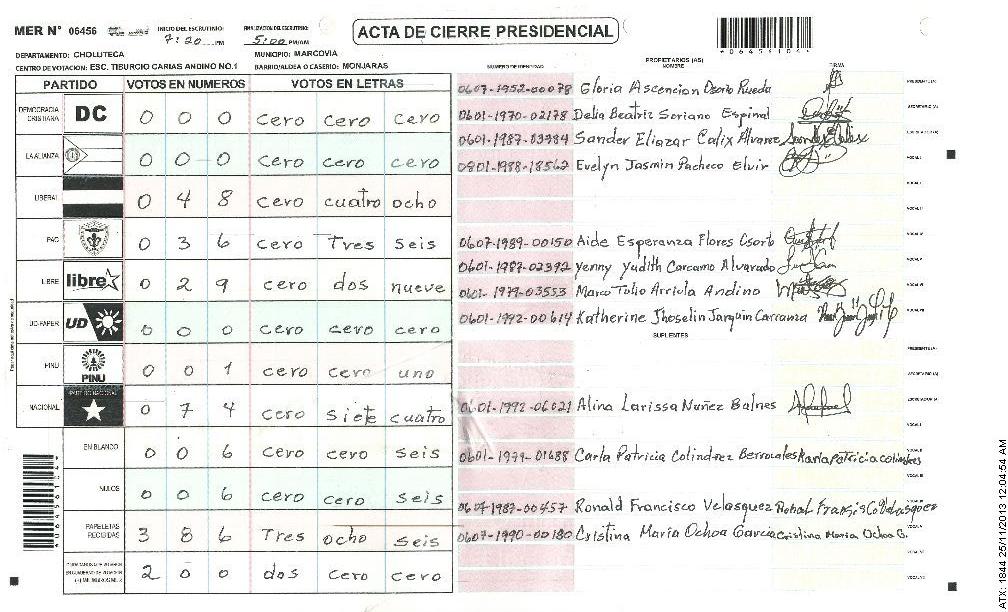 MER N° 06456
INICIO DEL ESCRUTINIO:
7:20 PM
FINALIZACION DEL ESCRUTINIO:
5:00 PM/AM
ACTA DE CIERRE PRESIDENCIAL
DEPARTAMENTO: CHOLUTECA
MUNICIPIO: MARCOVIA
CENTRO DE VOTACION: ESC. TIBURCIO CARIAS ANDINO NO.1
BARRIO/ALDEA O CASERIO: MONJARAS
PARTIDO VOTOS EN NUMEROS VOTOS EN LETRAS
DEMOCRACIA CRISTIANA DC 0 0 0 cero cero cero
LA ALIANZA 0 0 0 cero cero cero
LIBERAL 0 4 8 cero cuatro ocho
PAC 0 3 6 cero Tres seis
LIBRE libre 0 2 9 cero dos nueve
UD-FAPER UD 0 0 0 cero cero cero
PINU PINU 0 0 1 cero cero uno
NACIONAL PARTIDO NACIONAL 0 7 4 cero siete cuatro
EN BLANCO 0 0 6 cero cero seis
NULOS 0 0 6 cero cero seis
PAPELETAS RECIBIDAS 3 8 6 Tres ocho seis
2 0 0 dos cero cero
PROPIETARIOS (AS)
NUMERO DE IDENTIDAD NOMBRE FIRMA
0607-1952-00078 Gloria Ascencion Osorto Rueda PRESIDENTE(A)
0601-1970-02178 Delia Beatriz Soriano Espinal SECRETARIO(A)
0601-1987-03984 Sander Eliazar Calix Alvarez
0801-1988-18562 Evelyn Jasmin Pacheco Elvir VOCAL I
0607-1989-00150 Aide Esperanza Flores Osorto
0601-1987-02392 Yenny Yudith Carcamo Alvarado
0601-1979-03553 Marco Tulio Arriola Andino
0601-1992-00614 Katherine Jhoselin Jarquin Carranza
SUPLENTES
PRESIDENTE(A)
SECRETARIO(A)
0601-1992-06021 Alina Larissa Nuñez Balnes
0601-1979-01688 Carla Patricia Colindrez Berrocales
0607-1987-00457 Ronald Francisco Velasquez
0607-1990-00180 Cristina Maria Ochoa Garcia Cristina Maria Ochoa G.
ATX: 1844 25/11/2013 12:04:54 AM